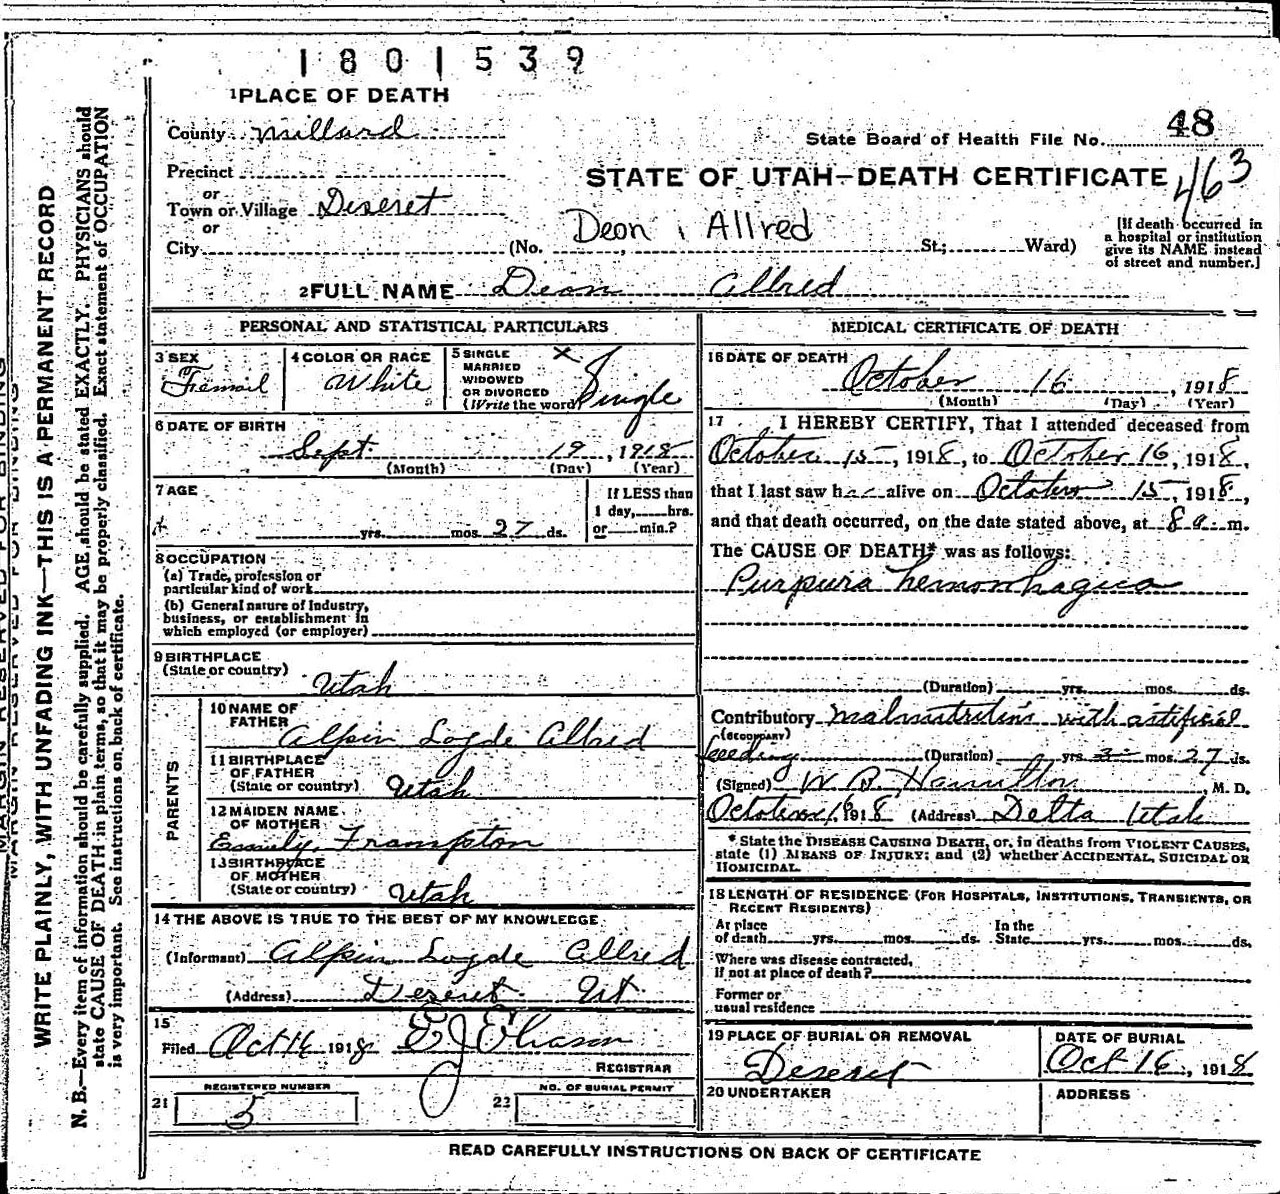 1801539
1 PLACE OF DEATH
County Millard
State Board of Health File No. 48
463
Precinct
or
Town or Village Deseret
or
City (No. St.; Ward)
STATE OF UTAH—DEATH CERTIFICATE
Deon Allred
[If death occurred in
a hospital or institution
give its NAME instead
of street and number.]
2 FULL NAME Deon Allred
PERSONAL AND STATISTICAL PARTICULARS
3 SEX
Femail
4 COLOR OR RACE
White
5 SINGLE
MARRIED
WIDOWED
OR DIVORCED
(Write the word)
X Single
6 DATE OF BIRTH
Sept. 19, 1918
(Month) (Day) (Year)
7 AGE
yrs. mos. 27 ds.
If LESS than
1 day, hrs.
or min.?
8 OCCUPATION
(a) Trade, profession or
particular kind of work
(b) General nature of Industry,
business, or establishment in
which employed (or employer)
9 BIRTHPLACE
(State or country)
Utah
PARENTS
10 NAME OF
FATHER
Alpin Logde Allred
11 BIRTHPLACE
OF FATHER
(State or country) Utah
12 MAIDEN NAME
OF MOTHER
Emily Frampton
13 BIRTHPLACE
OF MOTHER
(State or country) Utah
14 THE ABOVE IS TRUE TO THE BEST OF MY KNOWLEDGE
(Informant) Alpin Logde Allred
(Address) Deseret Ut.
15
Filed Oct 16 1918
REGISTRAR
REGISTERED NUMBER
21 5
NO. OF BURIAL PERMIT
23
MEDICAL CERTIFICATE OF DEATH
16 DATE OF DEATH
October 16, 1918
(Month) (Day) (Year)
17 I HEREBY CERTIFY, That I attended deceased from
October 15, 1918, to October 16, 1918,
that I last saw h alive on October 15, 1918,
and that death occurred, on the date stated above, at 8 a. m.
The CAUSE OF DEATH* was as follows:
Purpura hemorrhagica
(Duration) yrs. mos. ds.
Contributory malnutrition with artificial
(SECONDARY)
feeding (Duration) yrs. mos. 27 ds.
(Signed) W. B. Hamilton, M. D.
October 16, 1918 (Address) Delta Utah
* State the DISEASE CAUSING DEATH, or, in deaths from VIOLENT CAUSES,
state (1) MEANS OF INJURY; and (2) whether ACCIDENTAL, SUICIDAL OR
HOMICIDAL.
18 LENGTH OF RESIDENCE (FOR HOSPITALS, INSTITUTIONS, TRANSIENTS, OR
RECENT RESIDENTS)
At place
of death yrs. mos. ds.
In the
State yrs. mos. ds.
Where was disease contracted,
If not at place of death?
Former or
usual residence
19 PLACE OF BURIAL OR REMOVAL
Deseret
DATE OF BURIAL
Oct 16, 1918
20 UNDERTAKER
ADDRESS
READ CAREFULLY INSTRUCTIONS ON BACK OF CERTIFICATE
MARGIN RESERVED FOR BINDING
WRITE PLAINLY, WITH UNFADING INK—THIS IS A PERMANENT RECORD
N. B.—Every item of information should be carefully supplied. AGE should be stated EXACTLY. PHYSICIANS should
state CAUSE OF DEATH in plain terms, so that it may be properly classified. Exact statement of OCCUPATION
is very important. See instructions on back of certificate.